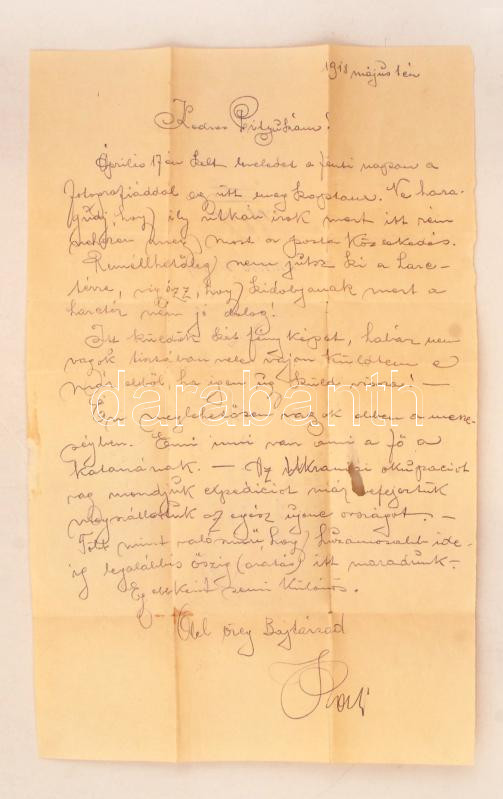 1918 május 1én
Kedves Pityukám!
Április 17én kelt leveledet a fenti napon a
fotografiáddal együtt megkaptam. Ne hara-
gudj, hogy ily ritkán írok mert itt rém
nehezen megy most a posta közlekedés.
Remélhetőleg nem jutsz ki a harc-
térre, vigyázz, hogy kidobjanak mert a
harctér nem jó dolog!
Itt küldök két fényképet, habár nem
vagyok tisztában vele vajon küldtem e
már ebből, ha igen úgy küld vissza! —
Én meglehetősen vagyok ebben a messe-
ségben. Enni inni van ami a fő a
katonának. — Az Ukraniai okupaciót
vagy mondjuk expediciót már befejeztük
megszállottuk az egész országot. —
Több mint valószinű, hogy huzamosabb ide-
ig legalábbis őszig (aratás) itt maradunk. —
Egyebként semmi különös.
Ölel öreg Bajtársad
darabanth